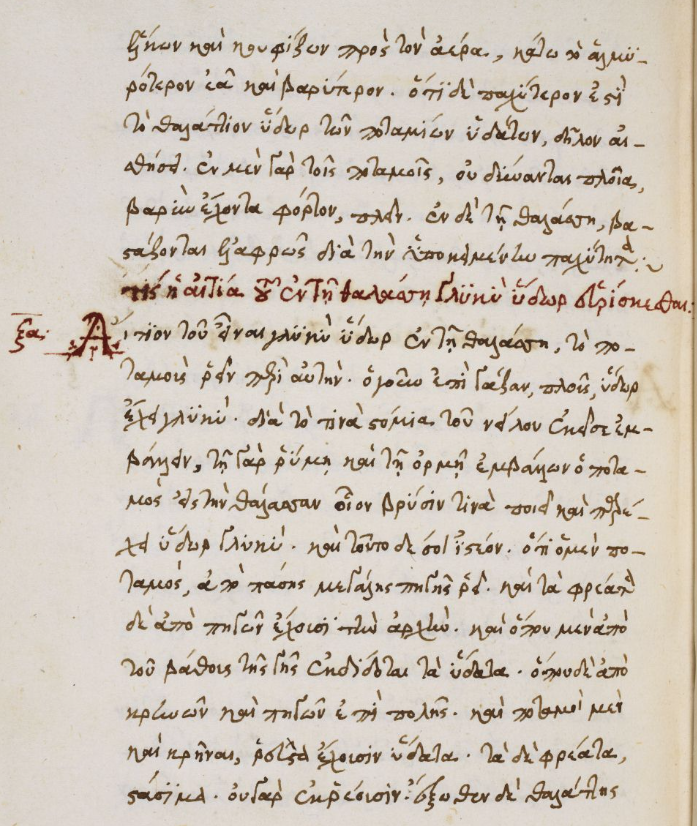 κῆπον καὶ κουφίζων πρὸς τὸν ἀέρα, κάτω τὸ ἁλμυ-
ρότερον ἐᾷ καὶ βαρύτερον. ὅτι δὲ παχύτερον ἐστὶ
τὸ θαλάττιον ὕδωρ τῶν ποταμίων ὑδάτων, δῆλον αἰ-
σθήσει. ἐν μὲν γὰρ τοῖς ποταμοῖς, οὐ δύνανται πλοῖα,
βαρὺν ἔχοντα φόρτον, πλεῖν. ἐν δὲ τῇ θαλάσσῃ, βα-
στάζονται ἐλαφρῶς διὰ τὴν ὑποκειμένην παχύτητα:
τίς ἡ αἰτία τοῦ ἐν τῇ θαλάσσῃ γλυκὺ ὕδωρ εὑρίσκεσθαι:
ξα. Αἴτιον τοῦ εἶναι γλυκὺ ὕδωρ ἐν τῇ θαλάσσῃ, τὸ πο-
ταμοὺς ῥεῖν περὶ αὐτήν. ὁ γοῦν ἐπὶ γάζαν, πλοῦς, ὕδωρ
ἔχει γλυκύ. διὰ τὸ τινὰ στόμια τοῦ νείλου ἐκεῖσε ἐμ-
βάλλειν, τῇ γὰρ ῥύμῃ καὶ τῇ ὁρμῇ ἐμβάλλων ὁ ποτα-
μὸς εἰς τὴν θάλασσαν οἷον βρύσιν τινὰ ποιεῖ καὶ παρέ-
χει ὕδωρ γλυκύ. καὶ τοῦτο δέ σοι ἰστέον. ὅτι ὁ μὲν πο-
ταμός, ἀπὸ πάσης μεγάλης πηγῆς ῥεῖ. καὶ τὰ φρέατα
δὲ ἀπὸ πηγῶν ἔχουσι τὴν ἀρχήν. καὶ ὅπου μὲν ἀπὸ
τοῦ βάθους τῆς γῆς ἐκδίδοται τὰ ὕδατα. ὅπου δὲ ἀπὸ
κρηνῶν καὶ πηγῶν ἐπιπολῆς. καὶ ποταμοὶ μὲν
καὶ κρῆναι, ῥυτὰ ἔχουσιν ὕδατα. τὰ δὲ φρέατα,
στάσιμα. οὐ γὰρ ἐκρέουσιν. ἔξωθεν δὲ θαλάττης